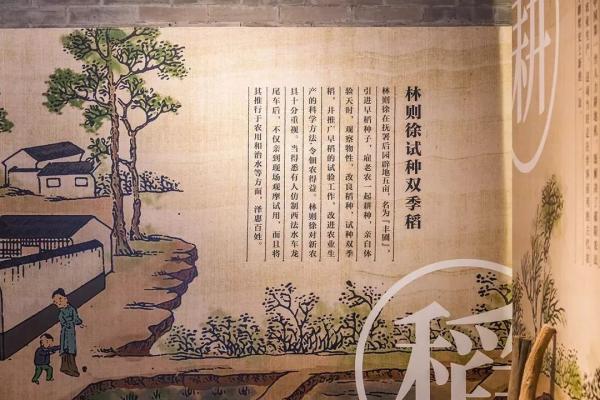 林则徐试种双季稻
林则徐在抚署后园辟地五亩，名为“丰圃”，
引进早稻种子，雇老农一起耕种，亲自体
验天时，观察物性，改良稻种，试种双季
稻，并推广早稻的试验工作，改进农业生
产的科学方法，令佃农得益。林则徐对新农
具十分重视。当得悉有人仿制西法水车龙
尾车后，不仅亲到现场观摩试用，而且将
其推行于农用和治水等方面，泽惠百姓。
耕
稻